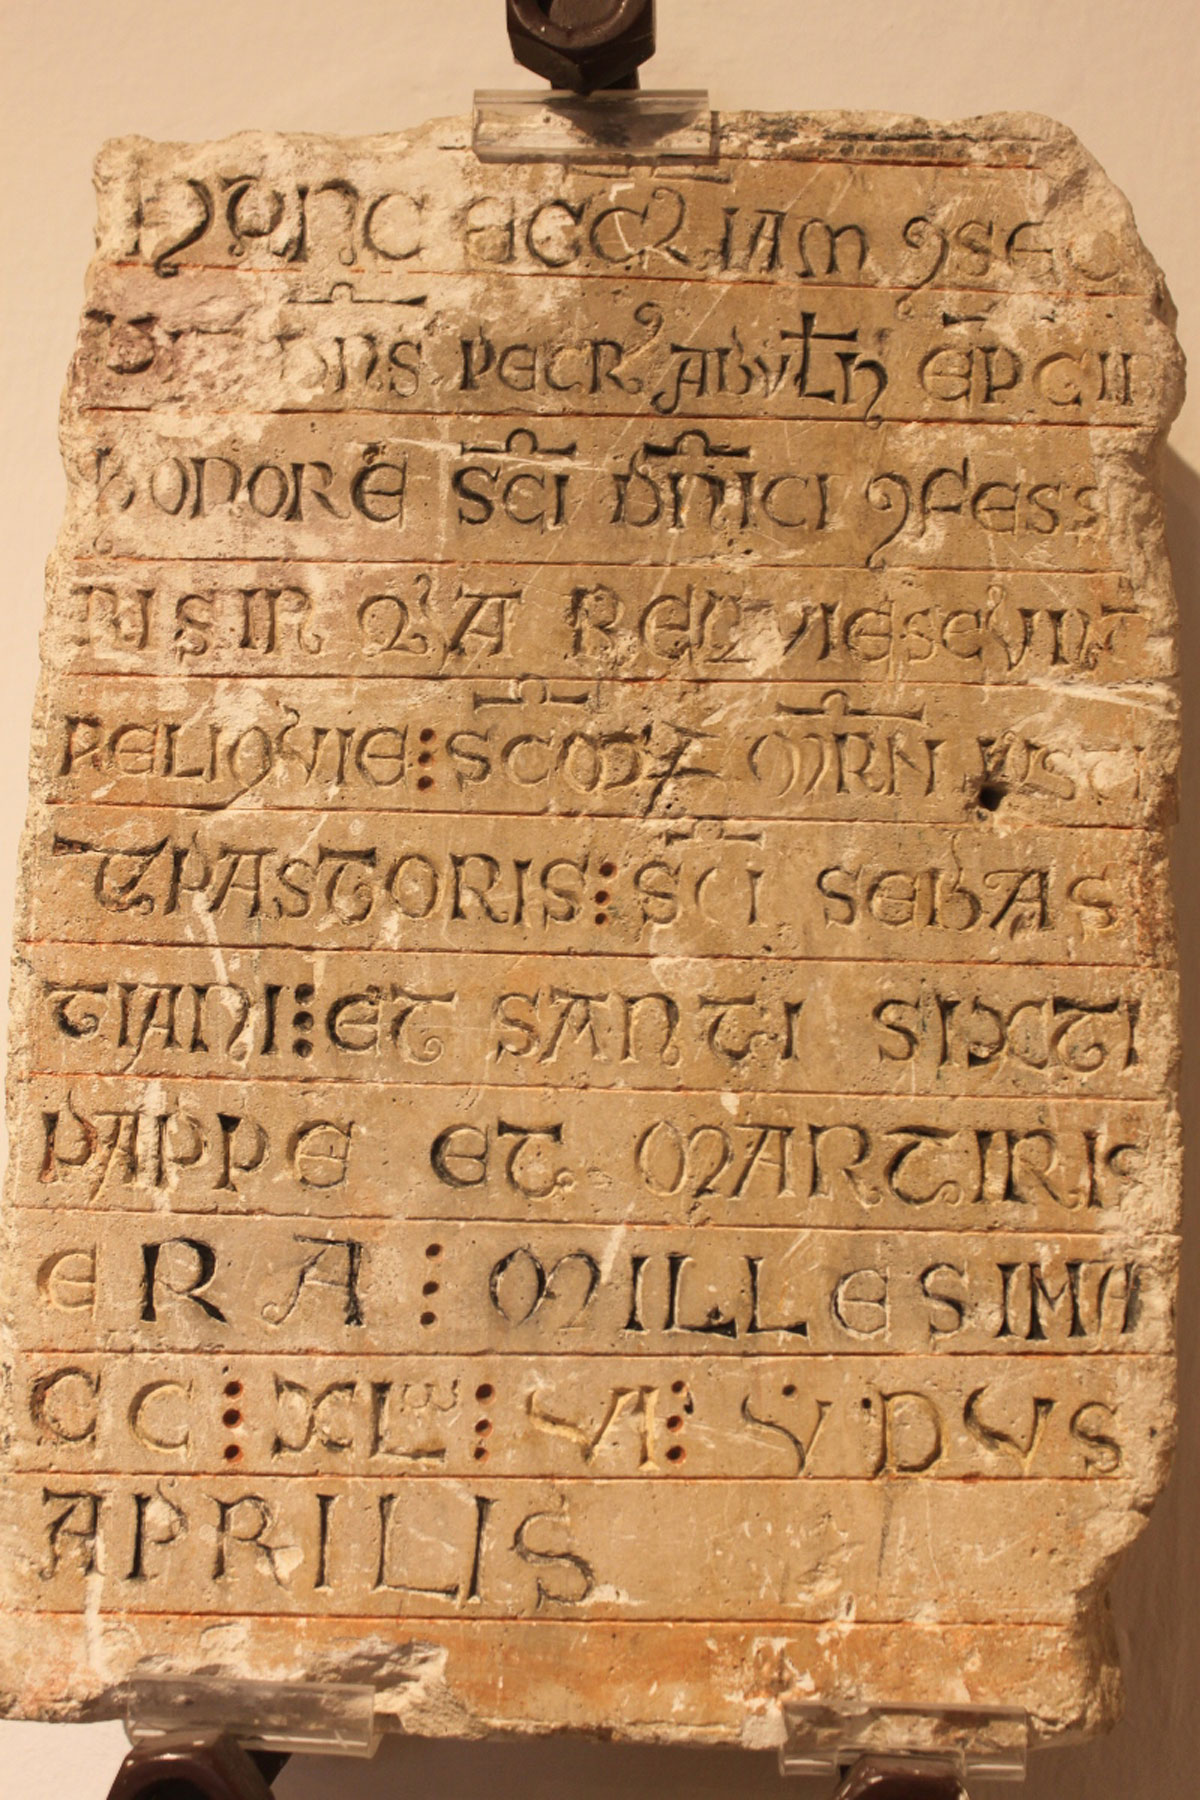 HUNC ECCLIAM ꝯSEC
DNS PETR' ABULEN EPC IN
HONORE SCI DNICI ꝯFESS
RIS IN Q'A REQUIESCUNT
RELIQUIE ⁝ SCOR MRM IUSTI
ET PASTORIS ⁝ SCI SEBAS
TIANI ⁝ ET SANTI SIXTI
PAPPE ET MARTIRIS
ERA ⁝ MILLESIMA
CC ⁝ XL ⁝ VI ⁝ YDUS
APRILIS